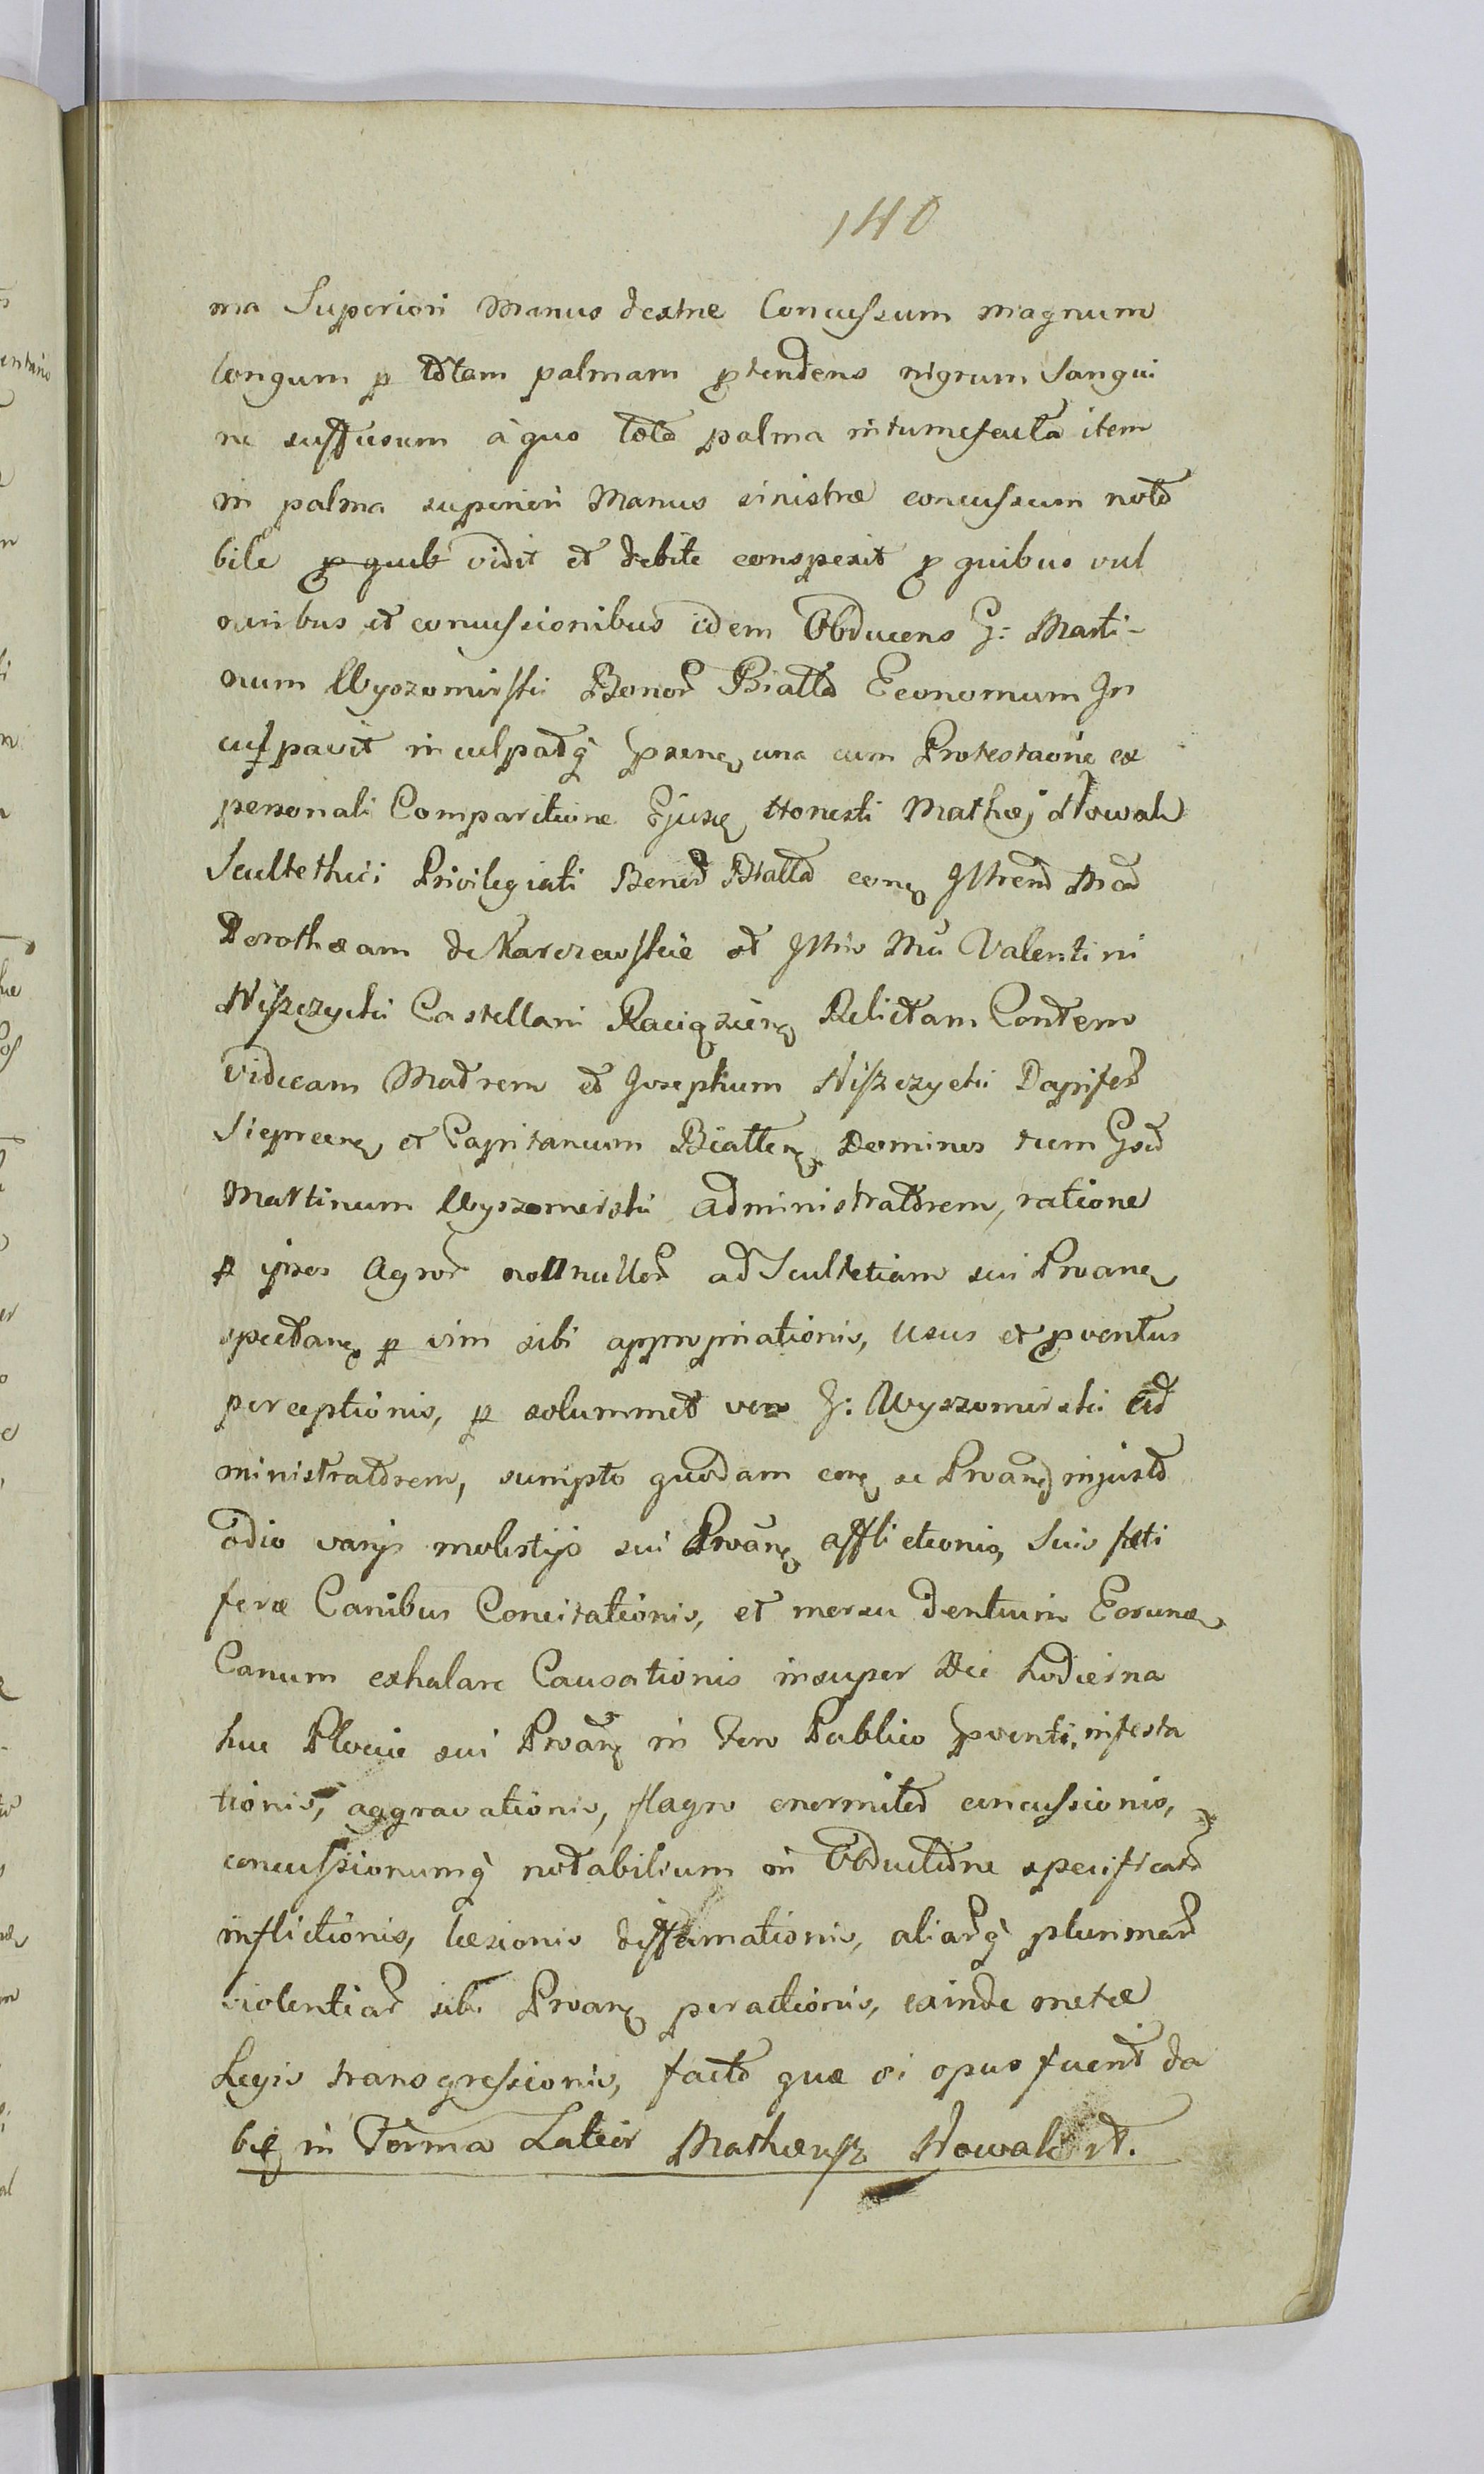 140
ma Superiori Manus dextræ Concussum magnum
longum p totam palmam ptendens nigrum Sangvi
ne suffusum à quo tota palma intumefacta item
in palma superiori Manus sinistræ concussum nota
bile p quib vidit et debite conspexit p quibus vul
neribus et concussionibus idem Obducens G: Marti-
num Wyszomirski Bonor Biatta Economum In
culpavit inculpatq psenq una cum Protestaõne ex
personali Comparitione Ejusq Honesti Mathæj Nowak
Scultethici Privilegiati Bonor Biatta conq Illrem Mcam
Dorotheam de Karczewskie et Illris Mci Valentini
Niszczycki Castellani Raciązienq Relictam Contem
viduam Matrem et Josephum Niszczycki Dapifer
Sieprcenq et Capitaneum Biattenq Dominos tum Gsm
Martinum Wyszomirski administratorem, ratione
p ipsos Agror nonnullor ad Scultetiam sui Proanq
spectanq p vim sibi appropriationis, usus et pventus
perceptionis, p solummet vero G: Wyszomirski Ad
ministratorem, sumpto quodam conq se Proanq injusto
odio varijs molestijs sui Proanq afflictionis, Suis fæti
feræ Canibus Concitationis, et morsu dentium Eorunq
Canum exhalare Causationis insuper Die hodierna
huc Plociæ sui Proanq in Foro Publico pventi, infesta
tionis, aggravationis, flagro enormiter concussionis,
concussionumq notabilium in Obductione specificator
inflictionis, læsionis diffamationis, aliarq plurimar
violentiar sibi Proanq peractionis, exinde metæ
Legis transgressionis, facta quæ si opus fuerit da
biq in Forma Latior Mathæusz Nowak